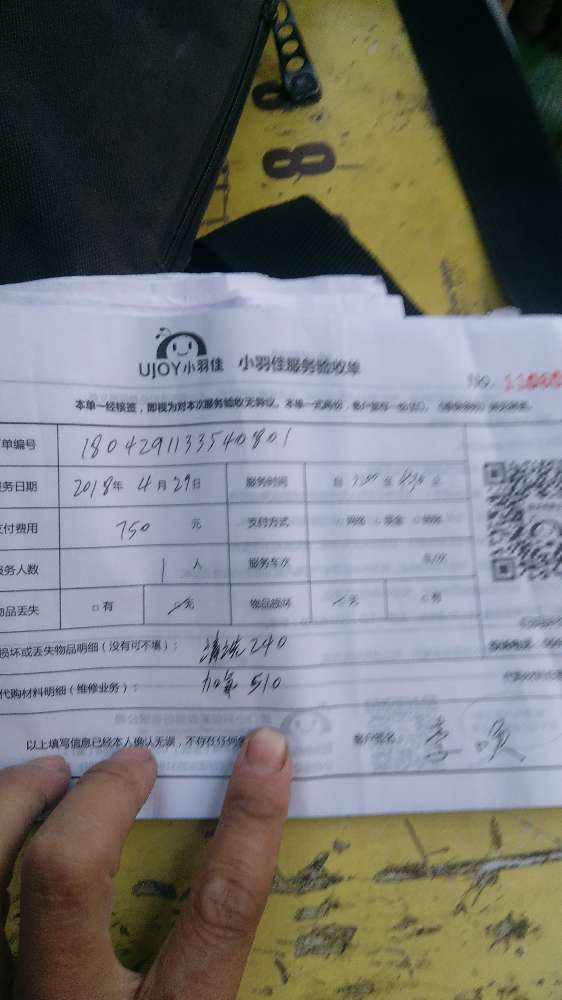 8
UJOY小羽佳 小羽佳服务验收单
NO. 11060
本单一经核签，即视为对本次服务验收无异议。本单一式两份，
单编号 1804291133540801
服务日期 2018年 4月29日 服务时间 自 至
支付费用 750 元 支付方式 □网络 □现金
服务人数 1 人 服务车次 车/次
物品丢失 □有 □无 物品损坏 □无 □有
损坏或丢失物品明细（没有可不填）： 清洗240
代购材料明细（维修业务）： 加氟 510
以上填写信息已经本人确认无误，不存在任何 客户签名：